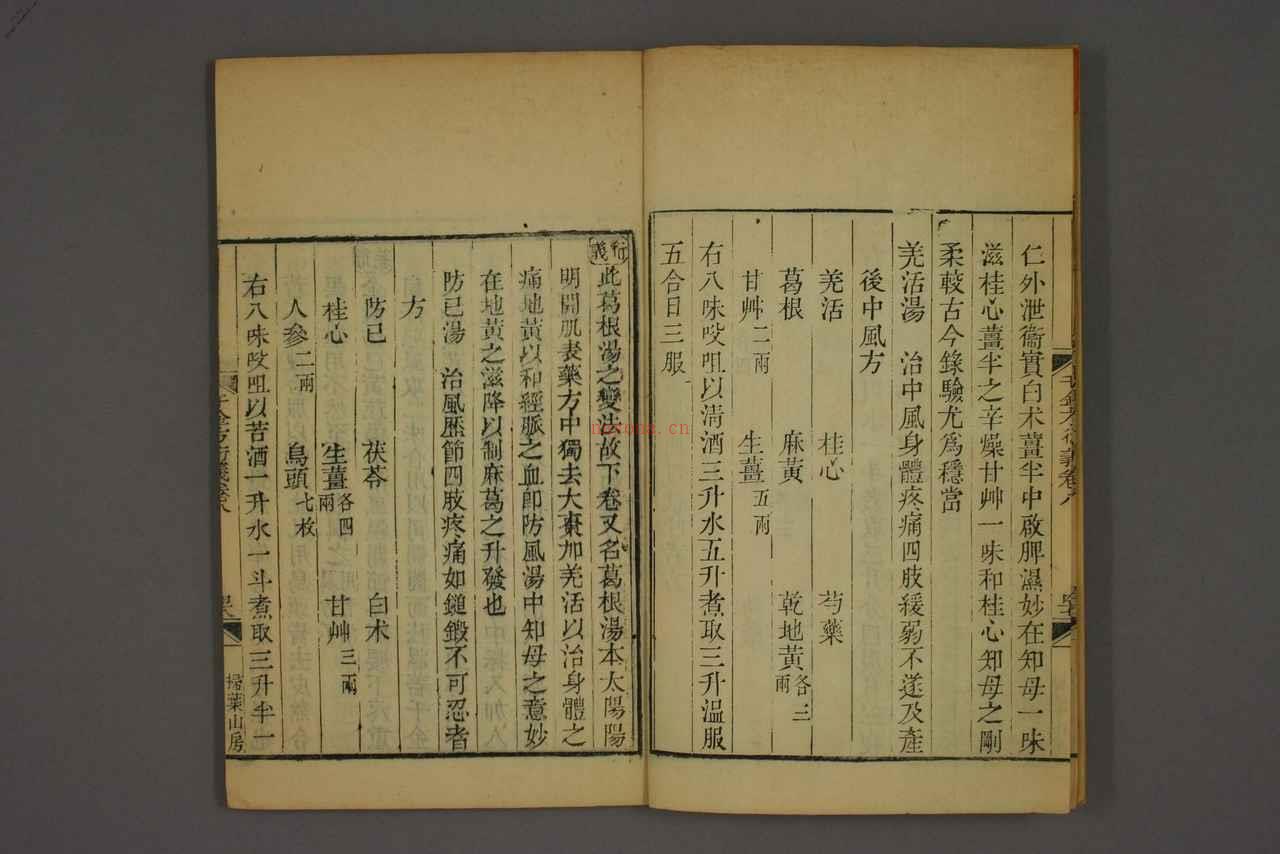 仁外泄衞實白术薑半中啟脾濕妙在知母一味
滋桂心薑半之辛燥甘艸一味和桂心知母之剛
柔較古今錄驗尤爲穩當
羌活湯　治中風身體疼痛四肢緩弱不遂及產
後中風方
羌活　桂心　芍藥
葛根　麻黃　乾地黃各三兩
甘艸二兩　生薑五兩
右八味㕮咀以清酒三升水五升煮取三升溫服
五合日三服
衍義此葛根湯之變法故下卷又名葛根湯本太陽陽
明開肌表藥方中獨去大棗加羌活以治身體之
痛地黃以和經脈之血卽防風湯中知母之意妙
在地黃之滋降以制麻葛之升發也
防已湯　治風歷節四肢疼痛如鎚鍛不可忍者
方
防已　茯苓　白术
桂心　生薑各四兩　甘艸三兩
人參二兩　烏頭七枚
右八味㕮咀以苦酒一升水一斗煮取三升半一
千金方衍義卷八
掃葉山房
nerona.cn